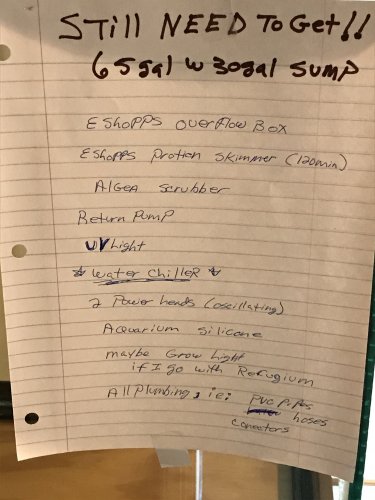 STill NEED To Get!!
65gal w 30gal sump
EShopps overflow Box
EShopps protien skimmer (120min)
Algea scrubber
Return Pump
UV Light
Water Chiller
2 Power heads (oscillating)
Aquarium silicone
maybe Grow Light
if I go with Refugium
All plumbing, ie: PVC pipes
hoses
conectors